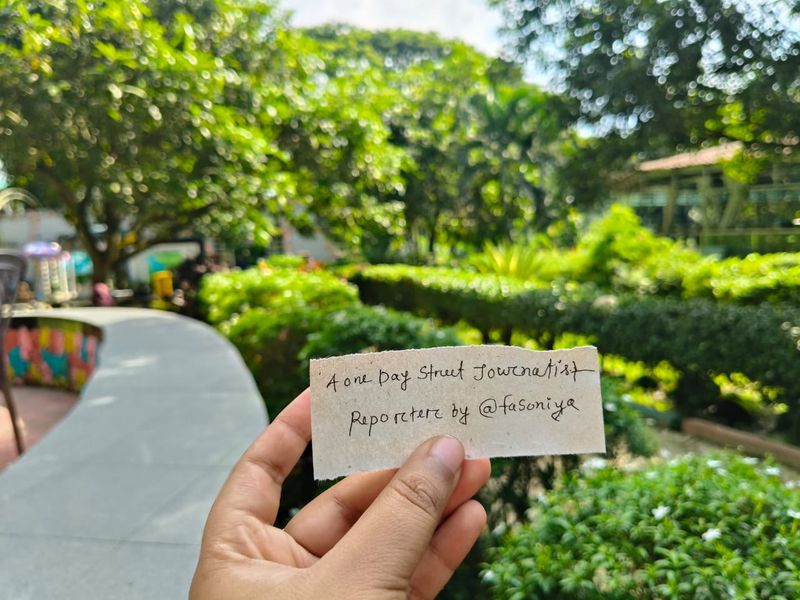 A one Day Street Journalist
Reporterc by @fasoniya